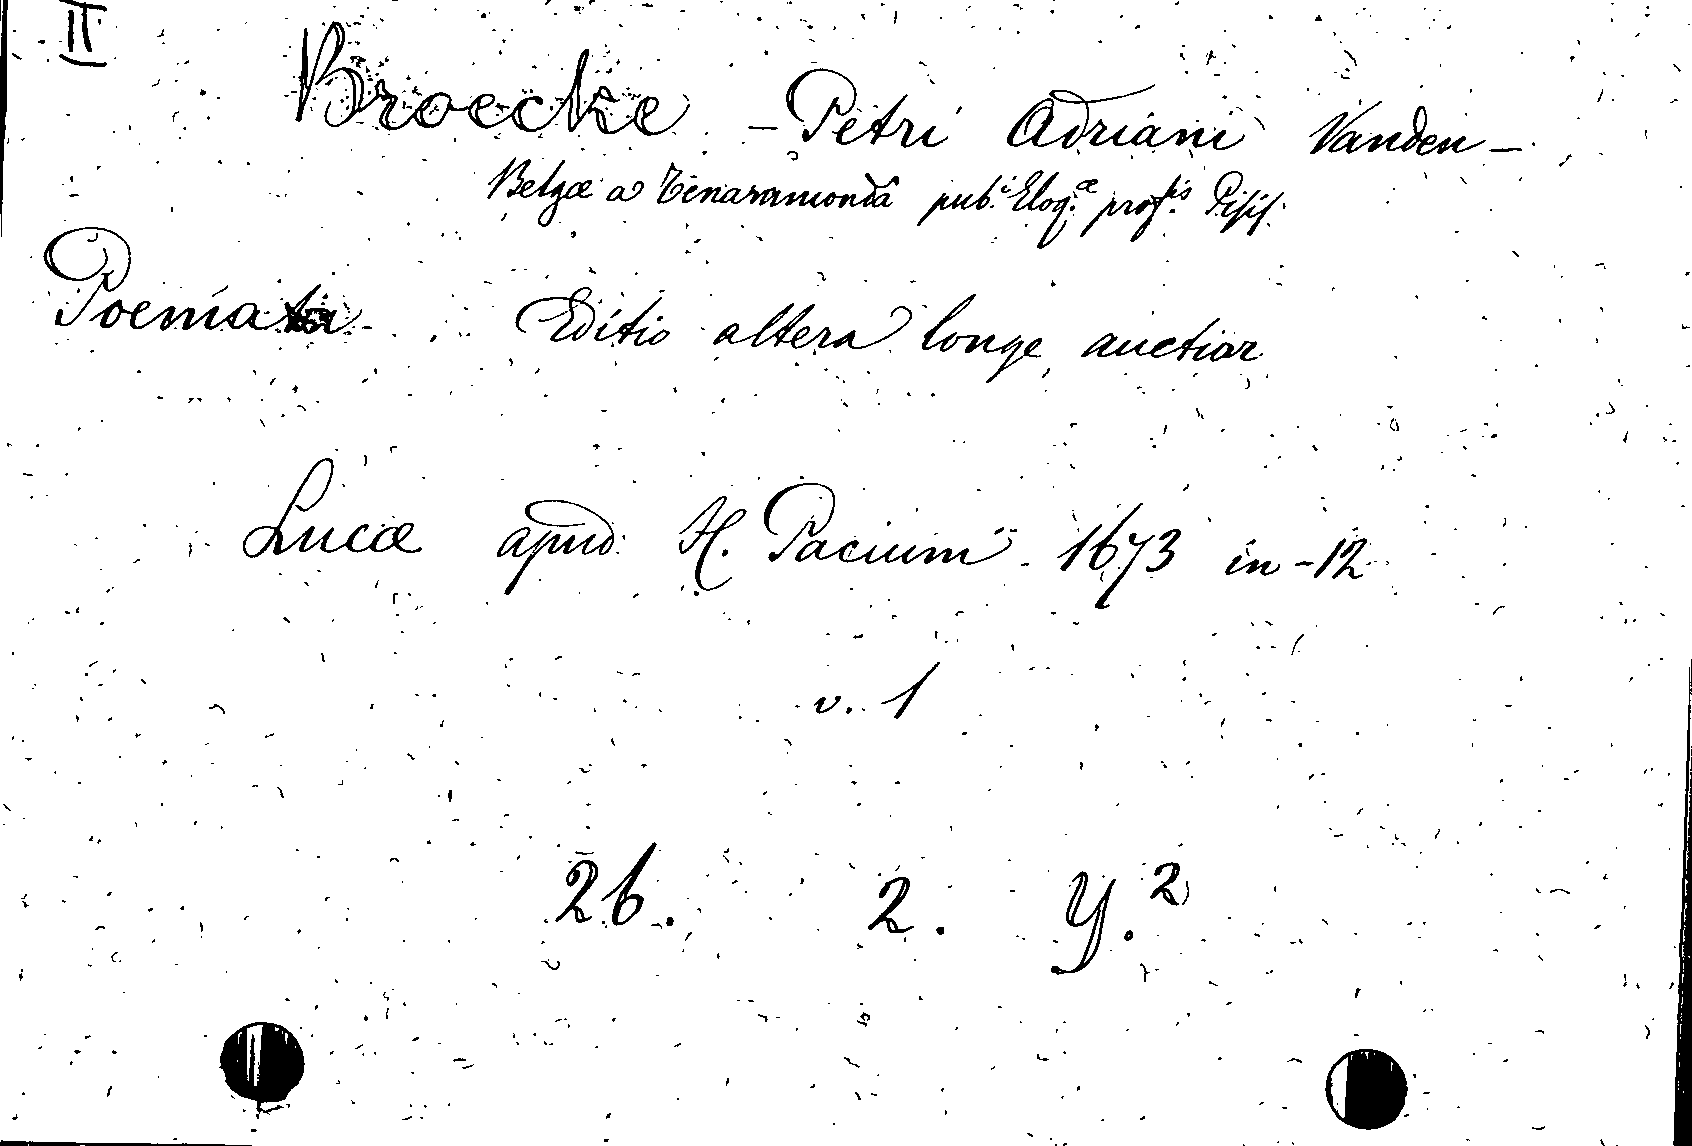 II
Broecke - Petri Adriani Vanden -
Belgæ a Teneramondâ pub.ci Eloq.æ prof.is Pisis.
Poemata Editio altera longe auctior
Lucæ apud H. Pacium 1673 in-12
v. 1
26. 2. Y.2